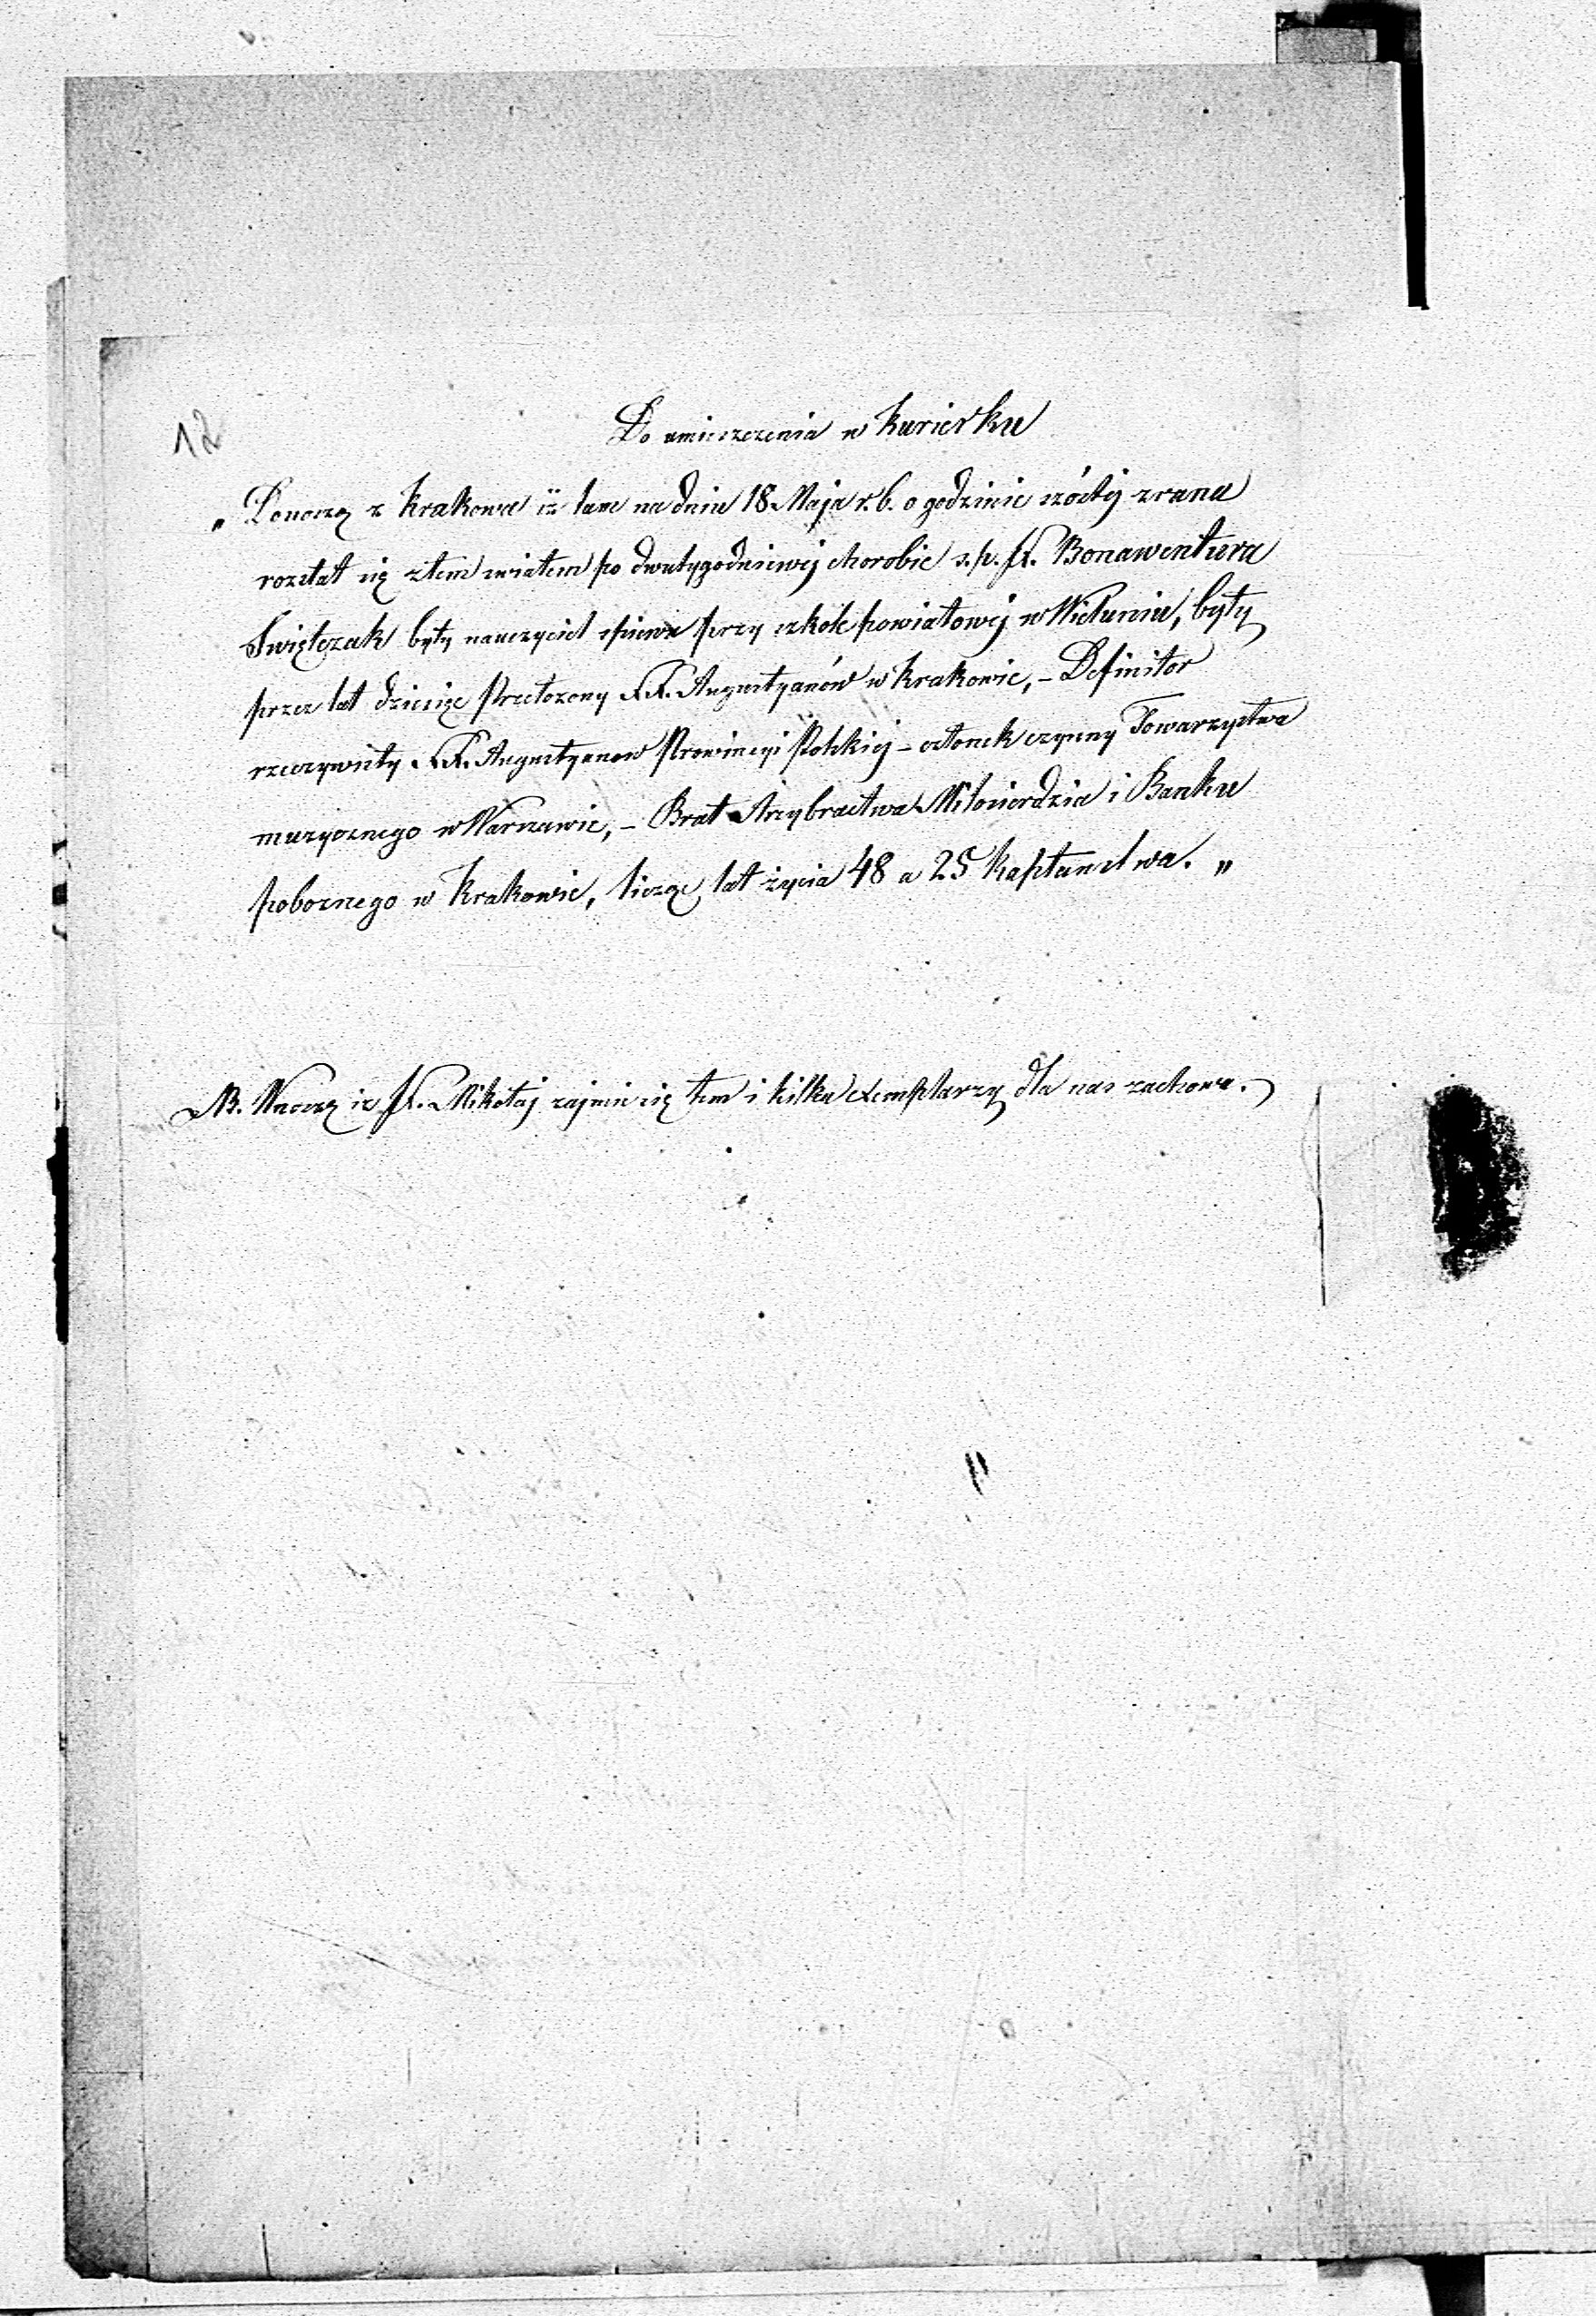 12
Do umieszczenia w Kurierku
„ Donoszą z Krakowa iż tam na dniu 18. Maja r.b. o godzinie szósty zrana
rozstał się z tem swiatem po dwutygodniowej chorobie s.p. X. Bonawentura
Swiętczak były nauczyciel spiewu przy szkole powiatowej w Wieluniu, były
przez lat dziesięć Przełożony XX. Augustyanów w Krakowie, – Definitor
rzeczywisty XX. Augustyanow Prowincyi Polskiej – członek czynny Towarzystwa
muzycznego w Warszawie, – Brat Arcybractwa Miłosierdzia i Banku
pobożnego w Krakowie, licząc lat życia 48 a 25 kapłanstwa. „
NB. Wnoszę iz X. Mikołaj zajmie się tem i kilka exemplarzy dla nas zachowa.